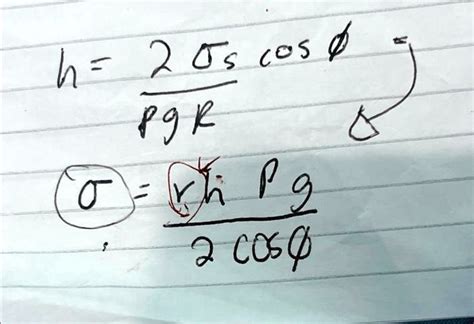 h = 2 σs cos φ
ρ g R
σ = r h ρ g
2 cos φ